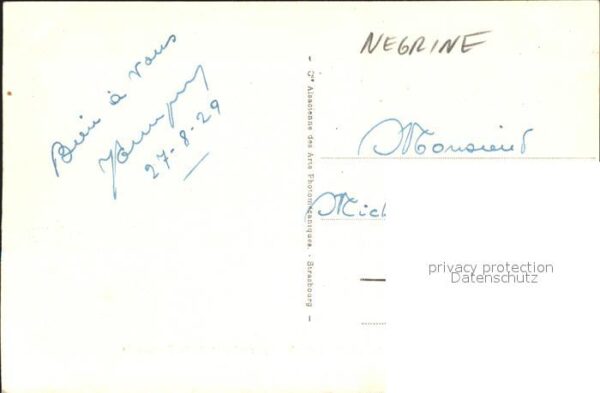 Bien à vous
27-8-29
Cie Alsacienne des Arts Photomécaniques. - Strasbourg
NEGRINE
Monsieur
Mich
privacy protection
Datenschutz